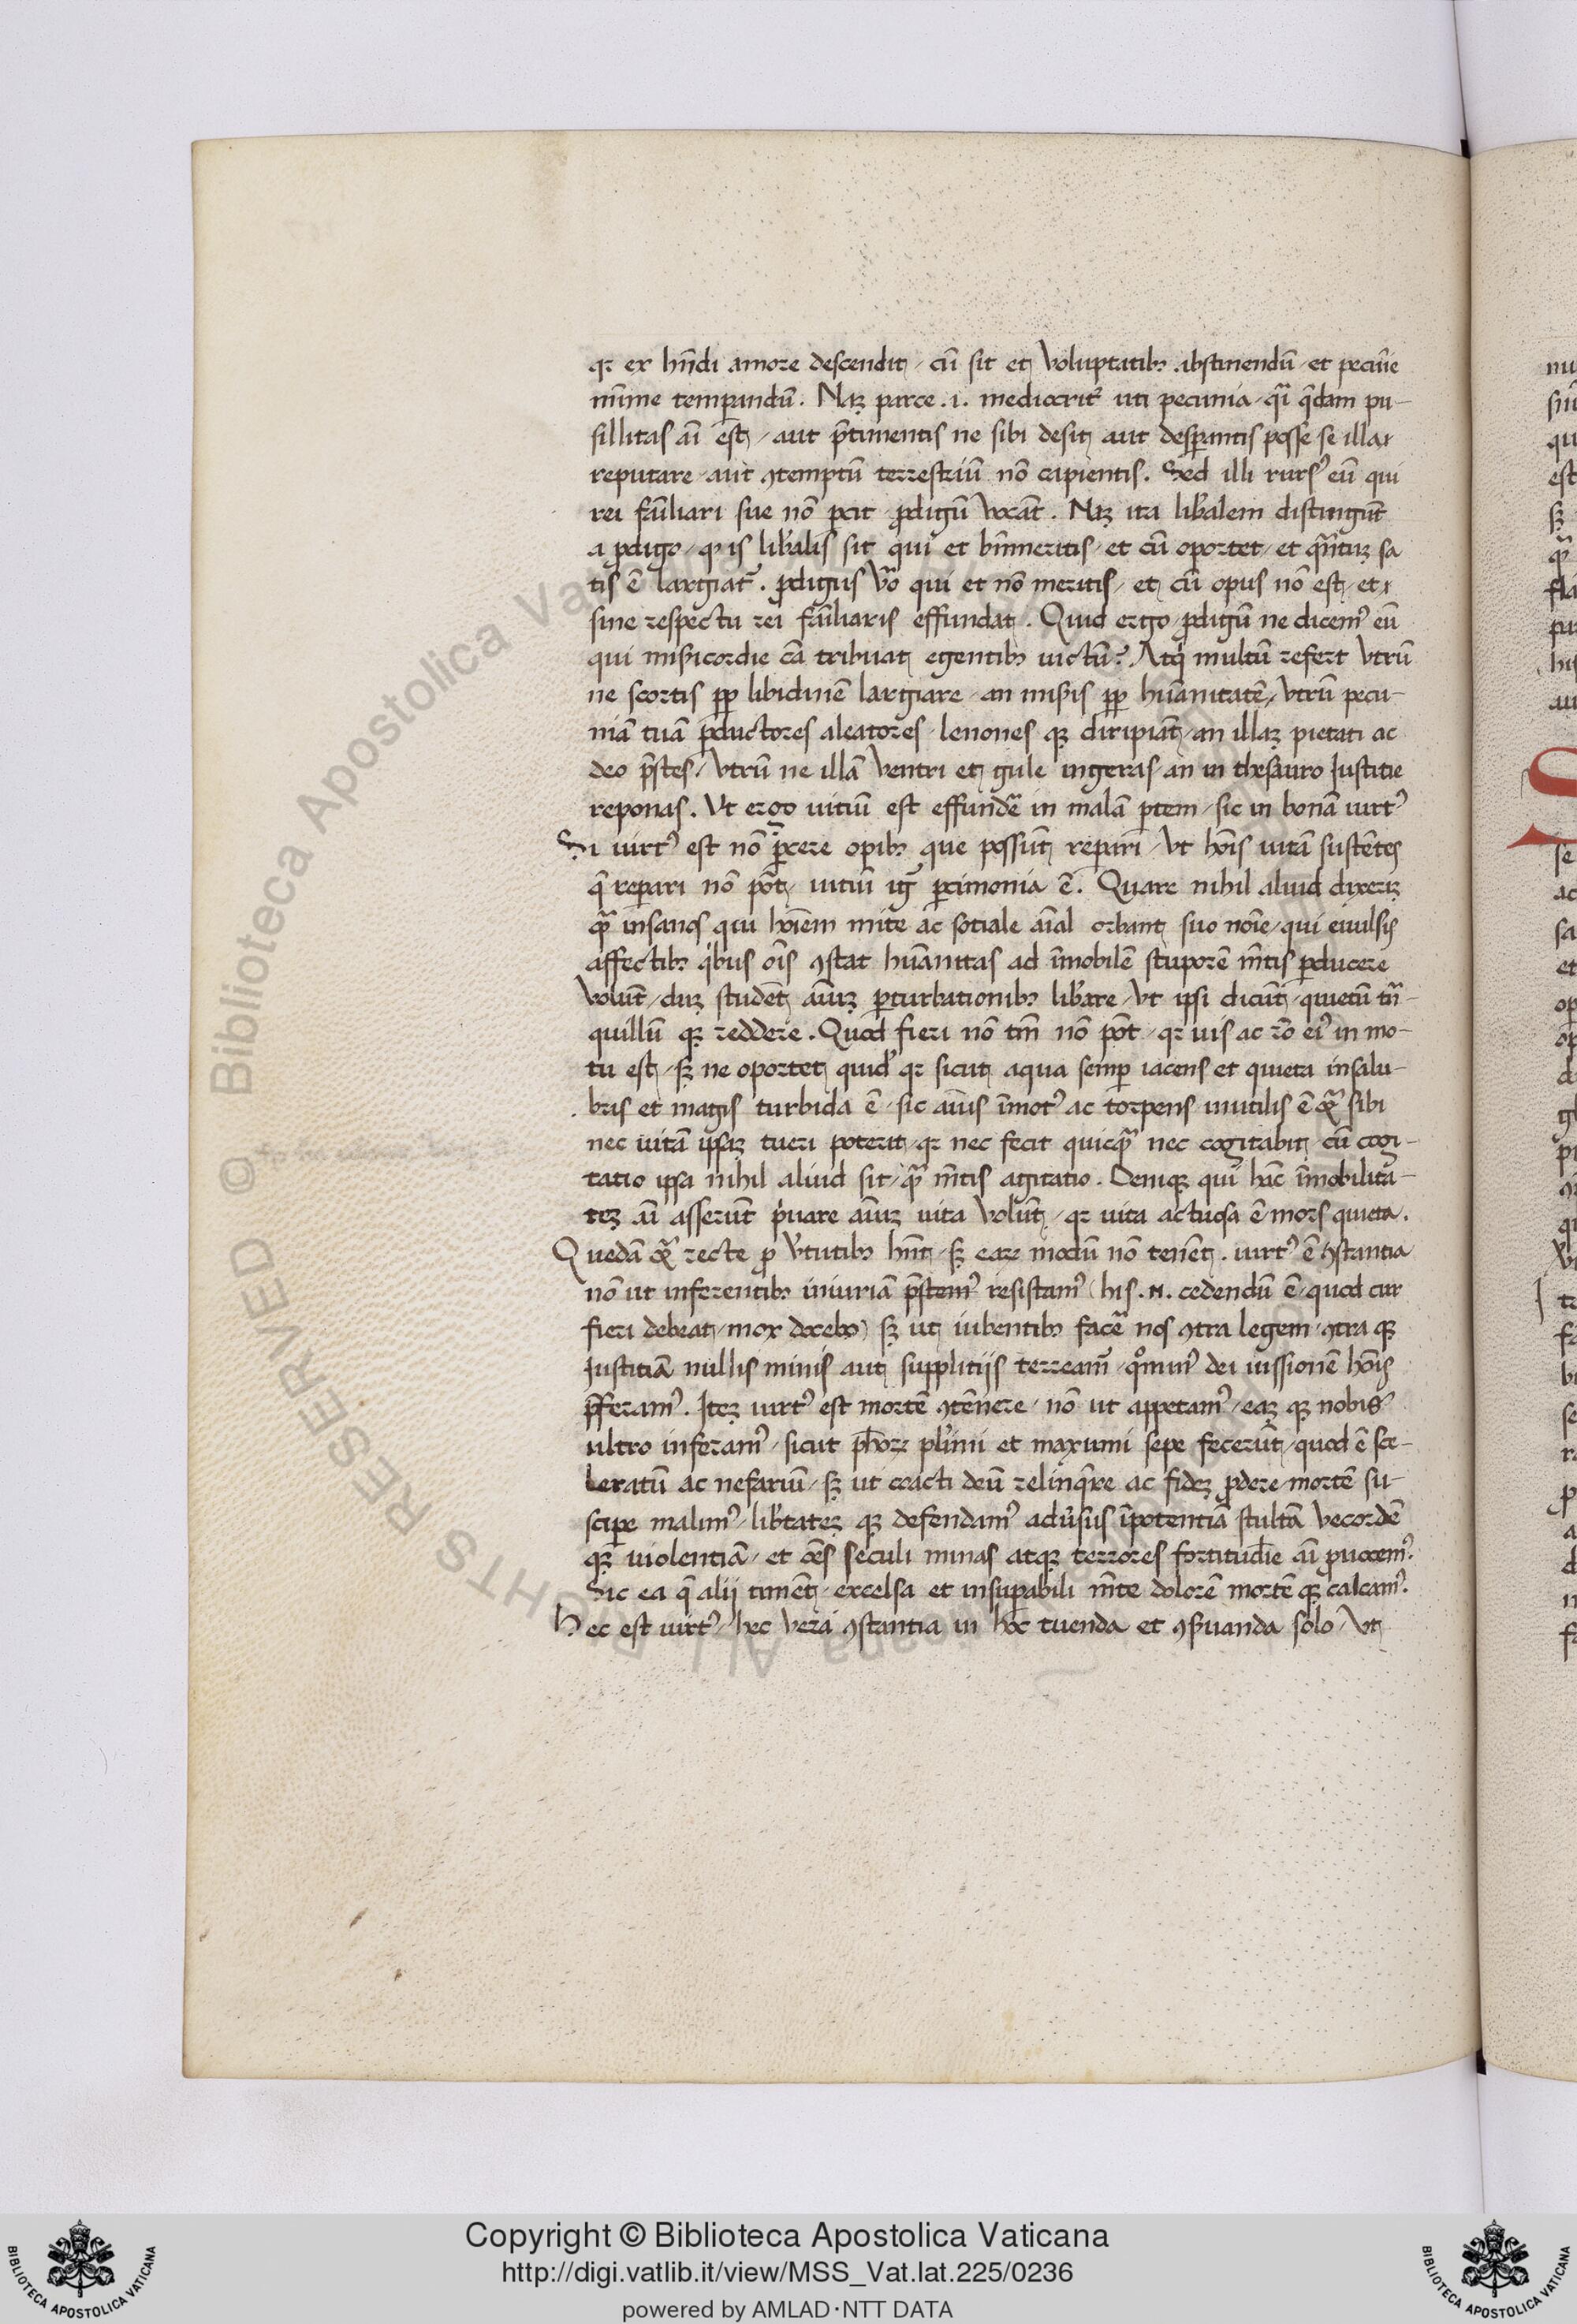 qꝛ ex hn̄di amore descendit / cū sit et voluptatibꝫ abstinendū / et pecūie
mīme temperandū . Naꝫ parce .i. mediocrit᷑ uti pecunia / q̄i q̄dam pu-
sillitas āi est / aut p̄timentis ne sibi desit aut desperantis posse se illa
reputare / aut ꝯtemptū terrestriū nō capientis . Sed illi rursꝰ eū qui
rei fāiliari sue nō ꝑcit ꝓdigū vocāt . Naꝫ ita liberalem distingūt
a ꝓdigo / qꝫ is liberalis sit qui et bn̄meritis / et cū oportet / et qn̄tuꝫ sa
tis ē largiat᷑ . ꝓdigus v̄o qui et nō meritis / et cū opus nō est / et
sine respectu rei fāiliaris effundat . Quid ergo / ꝓdigū ne dicemꝰ eū
qui mis̄icordie cā tribuat egentibꝫ uictū ? Atqͥ multū refert vtrū
ne scortis ꝓp libidinē largiare / an mis̄is ꝓp hūanitatē / vtrū pecu-
niā tuā ꝑductores aleatores / lenones qꝫ diripiāt / an illaꝫ pietati ac
deo p̄stes / vtrū ne illā ventri et gule ingeras / an in thesauro Iustitie
reponas . Vt ergo uitiū est effundē in malā ꝑtem / sic in bonā uirtꝰ
Si uirtꝰ est nō ꝑcere opibꝫ que possunt reparari / vt hōis uitā sustētes
q̄ repari nō pōt / uitiū igr̄ ꝑcimonia ē . Quare nihil aliud dixeriꝫ
qᷓ insanos qui hōiem mite ac sotiale āial orbant suo nōie / qui euulsis
affectibꝫ qͥbus ōis ꝯstat hūanitas ad īmobilē stuporē mētis ꝑducere
volūt / duꝫ student āiuꝫ ꝑturbationibꝫ lib̄are / vt ipsi dicūt / quietū trā-
quillū qꝫ reddere . Quod fieri nō tm̄ nō pōt / qꝛ uis ac rō eiꝰ in mo-
tu est / sꝫ ne oportet quidē qꝛ sicut aqua semꝑ iacens et quieta insalu-
bris et magis turbida ē / sic aīus īmotꝰ ac torpens inutilis ē qᷓ sibi
nec uitā ipsaꝫ tueri poterit / qꝛ nec fecit quicqᷓ nec cogitabit / cū cogi-
tatio ipsa nihil aliud sit / qᷓ mētis agitatio . Deniqꝫ qui hāc īmobilita-
teꝫ āi asserūt pͥuare āiuꝫ uita volūt / qꝛ uita actuosa ē / mors quieta .
Quedā qᷓ recte ꝓ v̄tutibꝫ hn̄t / sꝫ eaꝝ modū nō tenēt . uirtꝰ ē ꝯstantia
nō ut inferentibꝫ iniuriā p̄stemꝰ resistamꝰ ( his .n. cedendū ē / quod cur
fieri debeat / mox docebo ) sꝫ ut iubentibꝫ facē nos ꝯtra legem / ꝯtra qꝫ
Iustitiā nullis minis aut supplitijs terreamᷣ / qͦminꝰ dei iussionē hōis
p̄feramꝰ . Iteꝫ uirtꝰ est mortē ꝯtēnere / nō ut appetamꝰ / eaꝫ qꝫ nobis
ultro inferamꝰ / sicut ph̄oꝝ plͥimi et maxumi sepe fecerūt / quod ē sce-
leratū ac nefariū / sꝫ ut coacti deū relinqͤre ac fideꝫ ꝓdere / mortē su-
sciꝑe malimꝰ / lib̄tateꝫ qꝫ defendamꝰ adu̾sus īpotentiā stultā vecordē
qꝫ uiolentiā / et oēs seculi minas atqꝫ terrores fortitudīe āi ꝓuocemꝰ .
Sic ea q̄ alii timēt / excelsa et insuꝑabili mēte dolorē mortē qꝫ calcamꝰ .
Hec est uirtꝰ / hec vera ꝯstantia in hoc tuenda et ꝯs̄uanda solo / vt
Copyright © Biblioteca Apostolica Vaticana
http://digi.vatlib.it/view/MSS_Vat.lat.225/0236
powered by AMLAD·NTT DATA